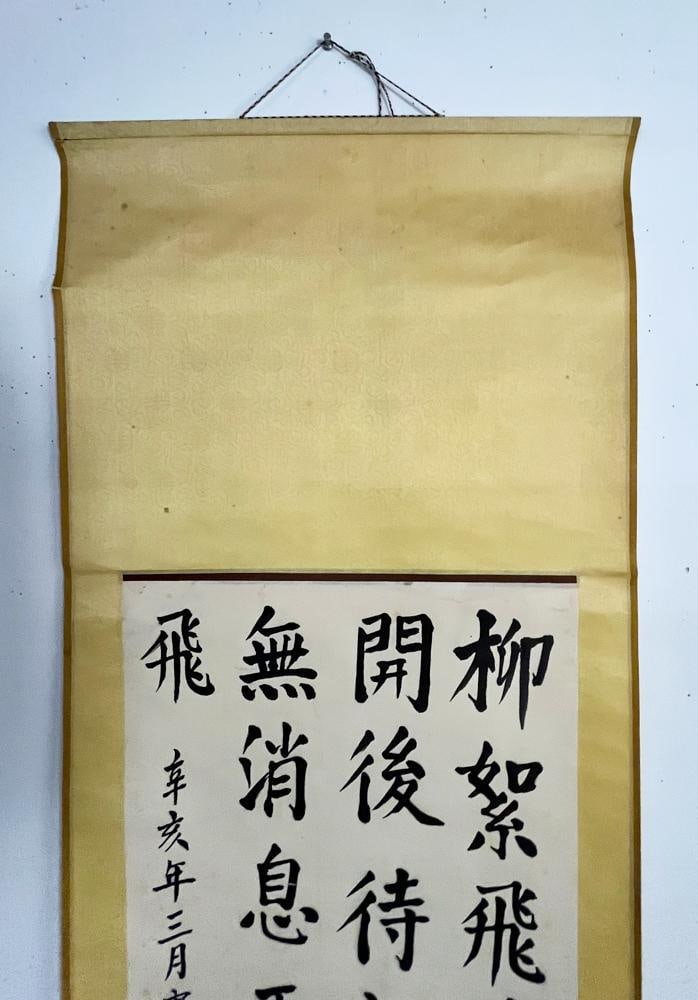 柳絮飛
開後待
無消息
飛
辛亥年三月